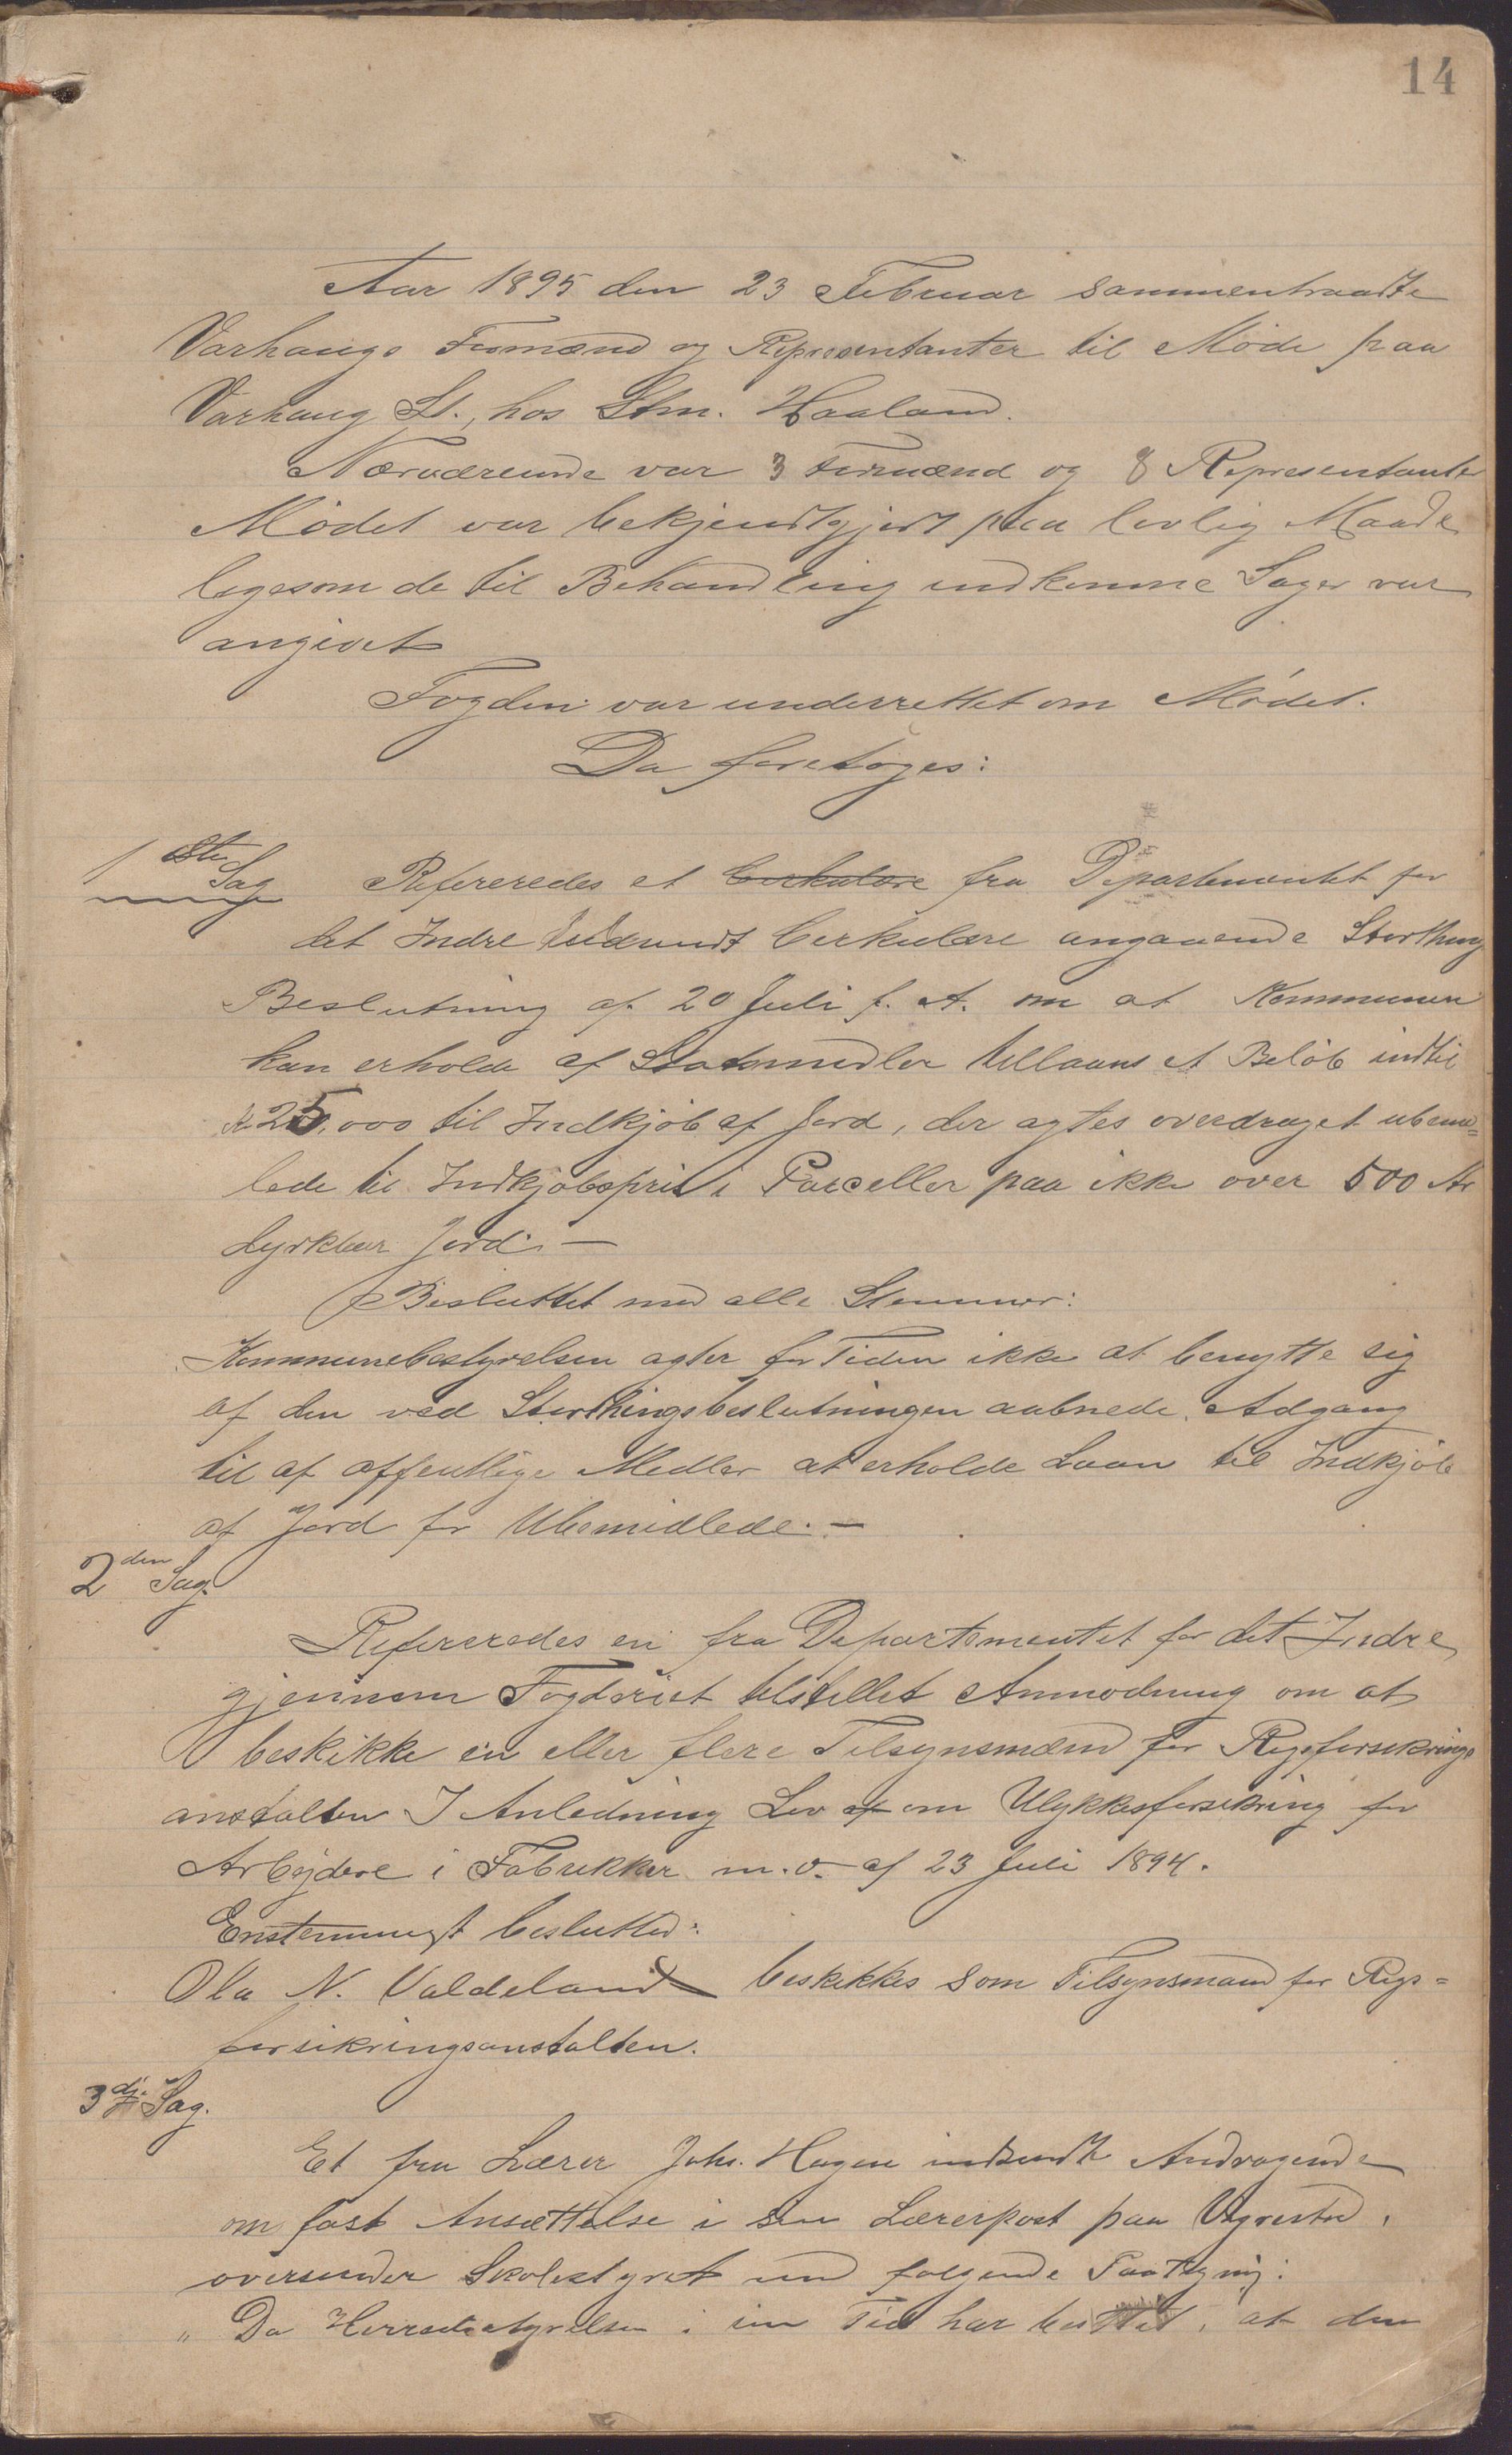 14
Aar 1895 den 23 Februar sammentraadte
Varhaugs Formænd og Representanter til Møde paa
Varhaug St., hos Stm. Haaland.
Nærværende var 3 Formænd og 8 Representanter
Mødet var bekjendtgjort paa lovlig Maade
ligesom de til Behandling indkomne Sager var
angivet
Fogden var underrettet om Mødet.
Da foretoges:
1ste Sag
Refereredes et Cirkulære fra Departementet for
det Indre udsendt Cirkulære angaaende Storthings
Beslutning af 20 Juli f. A. om at Kommunen
kan erholde af Statsmidler tillaans et Beløb indtil
Kr 25,000 til Indkjøb af Jord, der agtes overdraget ubemid=
lede til Indkjøbspris i Parceller paa ikke over 500 Ar
dyrkbar Jord. —
Besluttet med alle Stemmer:
Kommunebestyrelsen agter for Tiden ikke at benytte sig
af den ved Storthingsbeslutningen aabnede Adgang
til af offentlige Midler at erholde Laan til Indkjøb
af Jord for Ubemidlede. —
2den Sag.
Refereredes en fra Departementet for det Indre
gjennem Fogderiet tilstillet Anmodning om at
beskikke en eller flere Tilsynsmænd for Rigsforsikrings
anstalten I Anledning Lov af om Ulykkesforsikring for
Arbeidere i Fabrikker m. v. af 23 Juli 1894.
Enstemmigt besluttet:
Ola N. Valdeland beskikkes som Tilsynsmand for Rigs=
forsikringsanstalten.
3dje Sag.
Et fra Lærer Johs. Hagen indsendt Andragende
om fast Ansættelse i sin Lærerpost paa Vigrestad,
oversender Skolestyret med følgende Paategning:
" Da Herredsstyrelsen i sin Tid har besluttet, at den